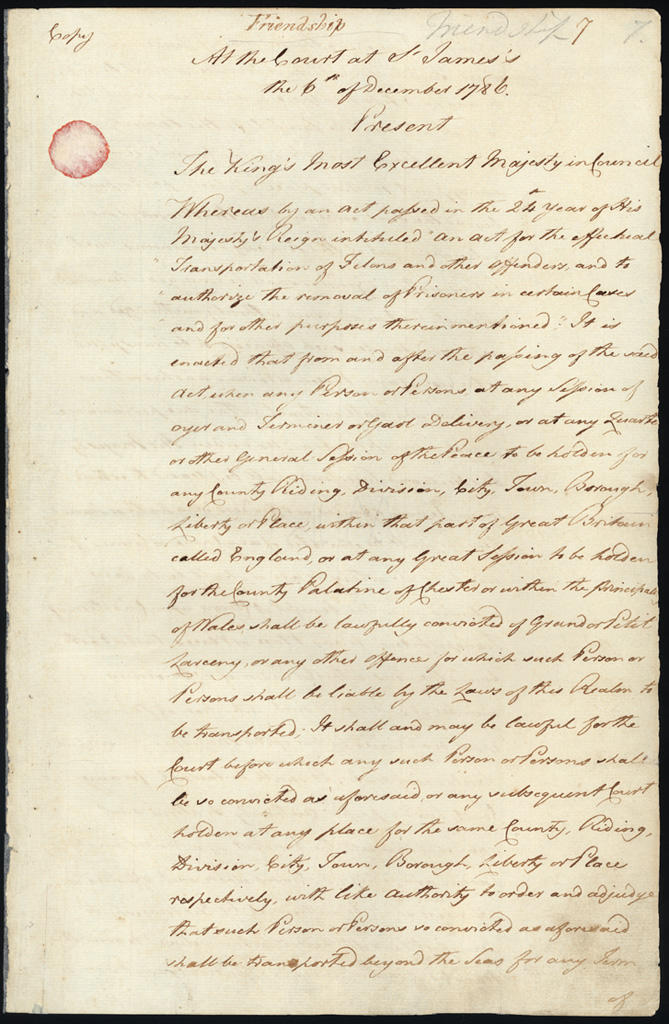 Friendship Friendship 7 7.
Copy
At the Court at St. James's
the 6th of December 1786.
Present
The King's Most Excellent Majesty in Council
Whereas by an Act passed in the 24th Year of His
Majesty's Reign intituled "An Act for the effectual
"Transportation of Felons and other Offenders, and to
"authorize the removal of Prisoners in certain Cases
"and for other purposes therein mentioned" It is
enacted that from and after the passing of the said
Act when any Person or Persons at any Session of
oyer and Terminer or Gaol Delivery, or at any Quarter
or other General Session of the Peace to be holden for
any County Riding, Division, City, Town, Borough,
Liberty or Place, within that part of Great Britain
called England, or at any Great Session to be holden
for the County Palatine of Chester or within the Principality
of Wales shall be lawfully convicted of Grand or Petit
Larceny, or any other Offence for which such Person or
Persons shall be liable by the Laws of this Realm to
be transported; It shall and may be lawful for the
Court before which any such Person or Persons shall
be so convicted as aforesaid, or any subsequent Court
holden at any place for the same County, Riding,
Division, City, Town, Borough, Liberty or Place
respectively, with like authority to order and adjudge
that such Person or Persons so convicted as aforesaid
shall be transported beyond the Seas for any Term
of